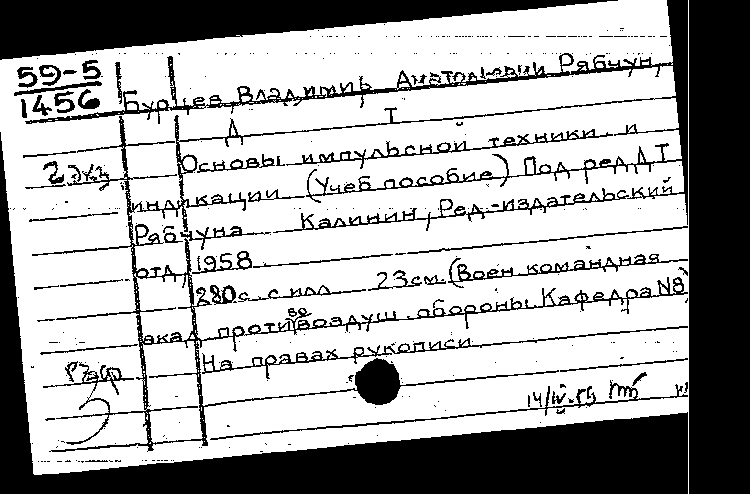 59-5
1456
Бурцев, Владимир Анатольевич и Рябчун,
Д Т
2 экз
Основы импульсной техники и
индикации (Учеб пособие) Под ред Д Т
Рябчуна Калинин, Ред.-издательский
отд, 1958.
280с. с илл 23см. (Воен командная
акад противовоздуш. обороны. Кафедра N8)
На правах рукописи
14/IV.59